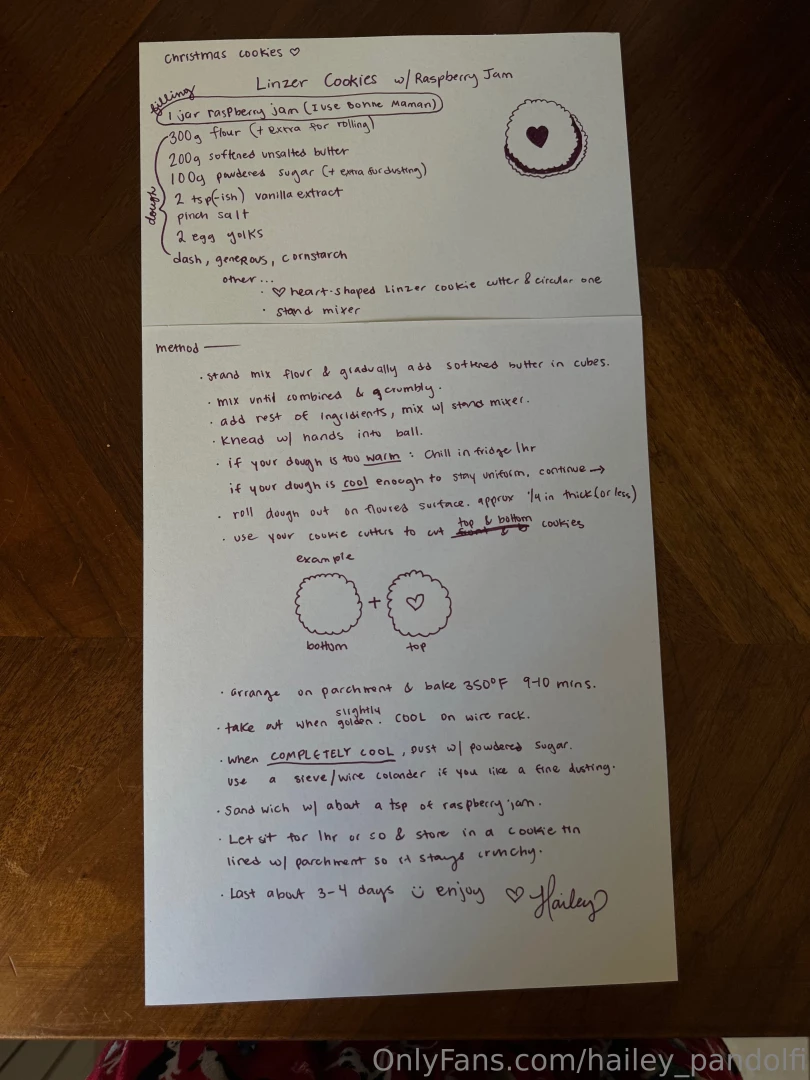 Christmas cookies ♡
Linzer Cookies w/ Raspberry Jam
filling
1 jar raspberry jam (I use Bonne Maman)
dough
300g flour (+ extra for rolling)
200g softened unsalted butter
100g powdered sugar (+ extra for dusting)
2 tsp(-ish) vanilla extract
pinch salt
2 egg yolks
dash, generous, cornstarch
other...
· ♡ heart-shaped Linzer cookie cutter & circular one
· stand mixer
method —
· stand mix flour & gradually add softened butter in cubes.
· mix until combined & crumbly.
· add rest of ingridients, mix w/ stand mixer.
· Knead w/ hands into ball.
· if your dough is too warm : Chill in fridge 1hr
if your dough is cool enough to stay uniform, continue →
· roll dough out on floured surface. approx 1/4 in thick (or less)
· use your cookie cutters to cut top & bottom cookies
example
+
bottom top
· arrange on parchment & bake 350°F 9-10 mins.
· take out when slightly golden. COOL on wire rack.
· when COMPLETELY COOL, Dust w/ powdered sugar.
use a sieve/wire colander if you like a fine dusting.
· Sandwich w/ about a tsp of raspberry jam.
· Let sit for 1hr or so & store in a cookie tin
lined w/ parchment so it stays crunchy.
· Last about 3-4 days ☺ enjoy ♡ Hailey
OnlyFans.com/hailey_pandolfi